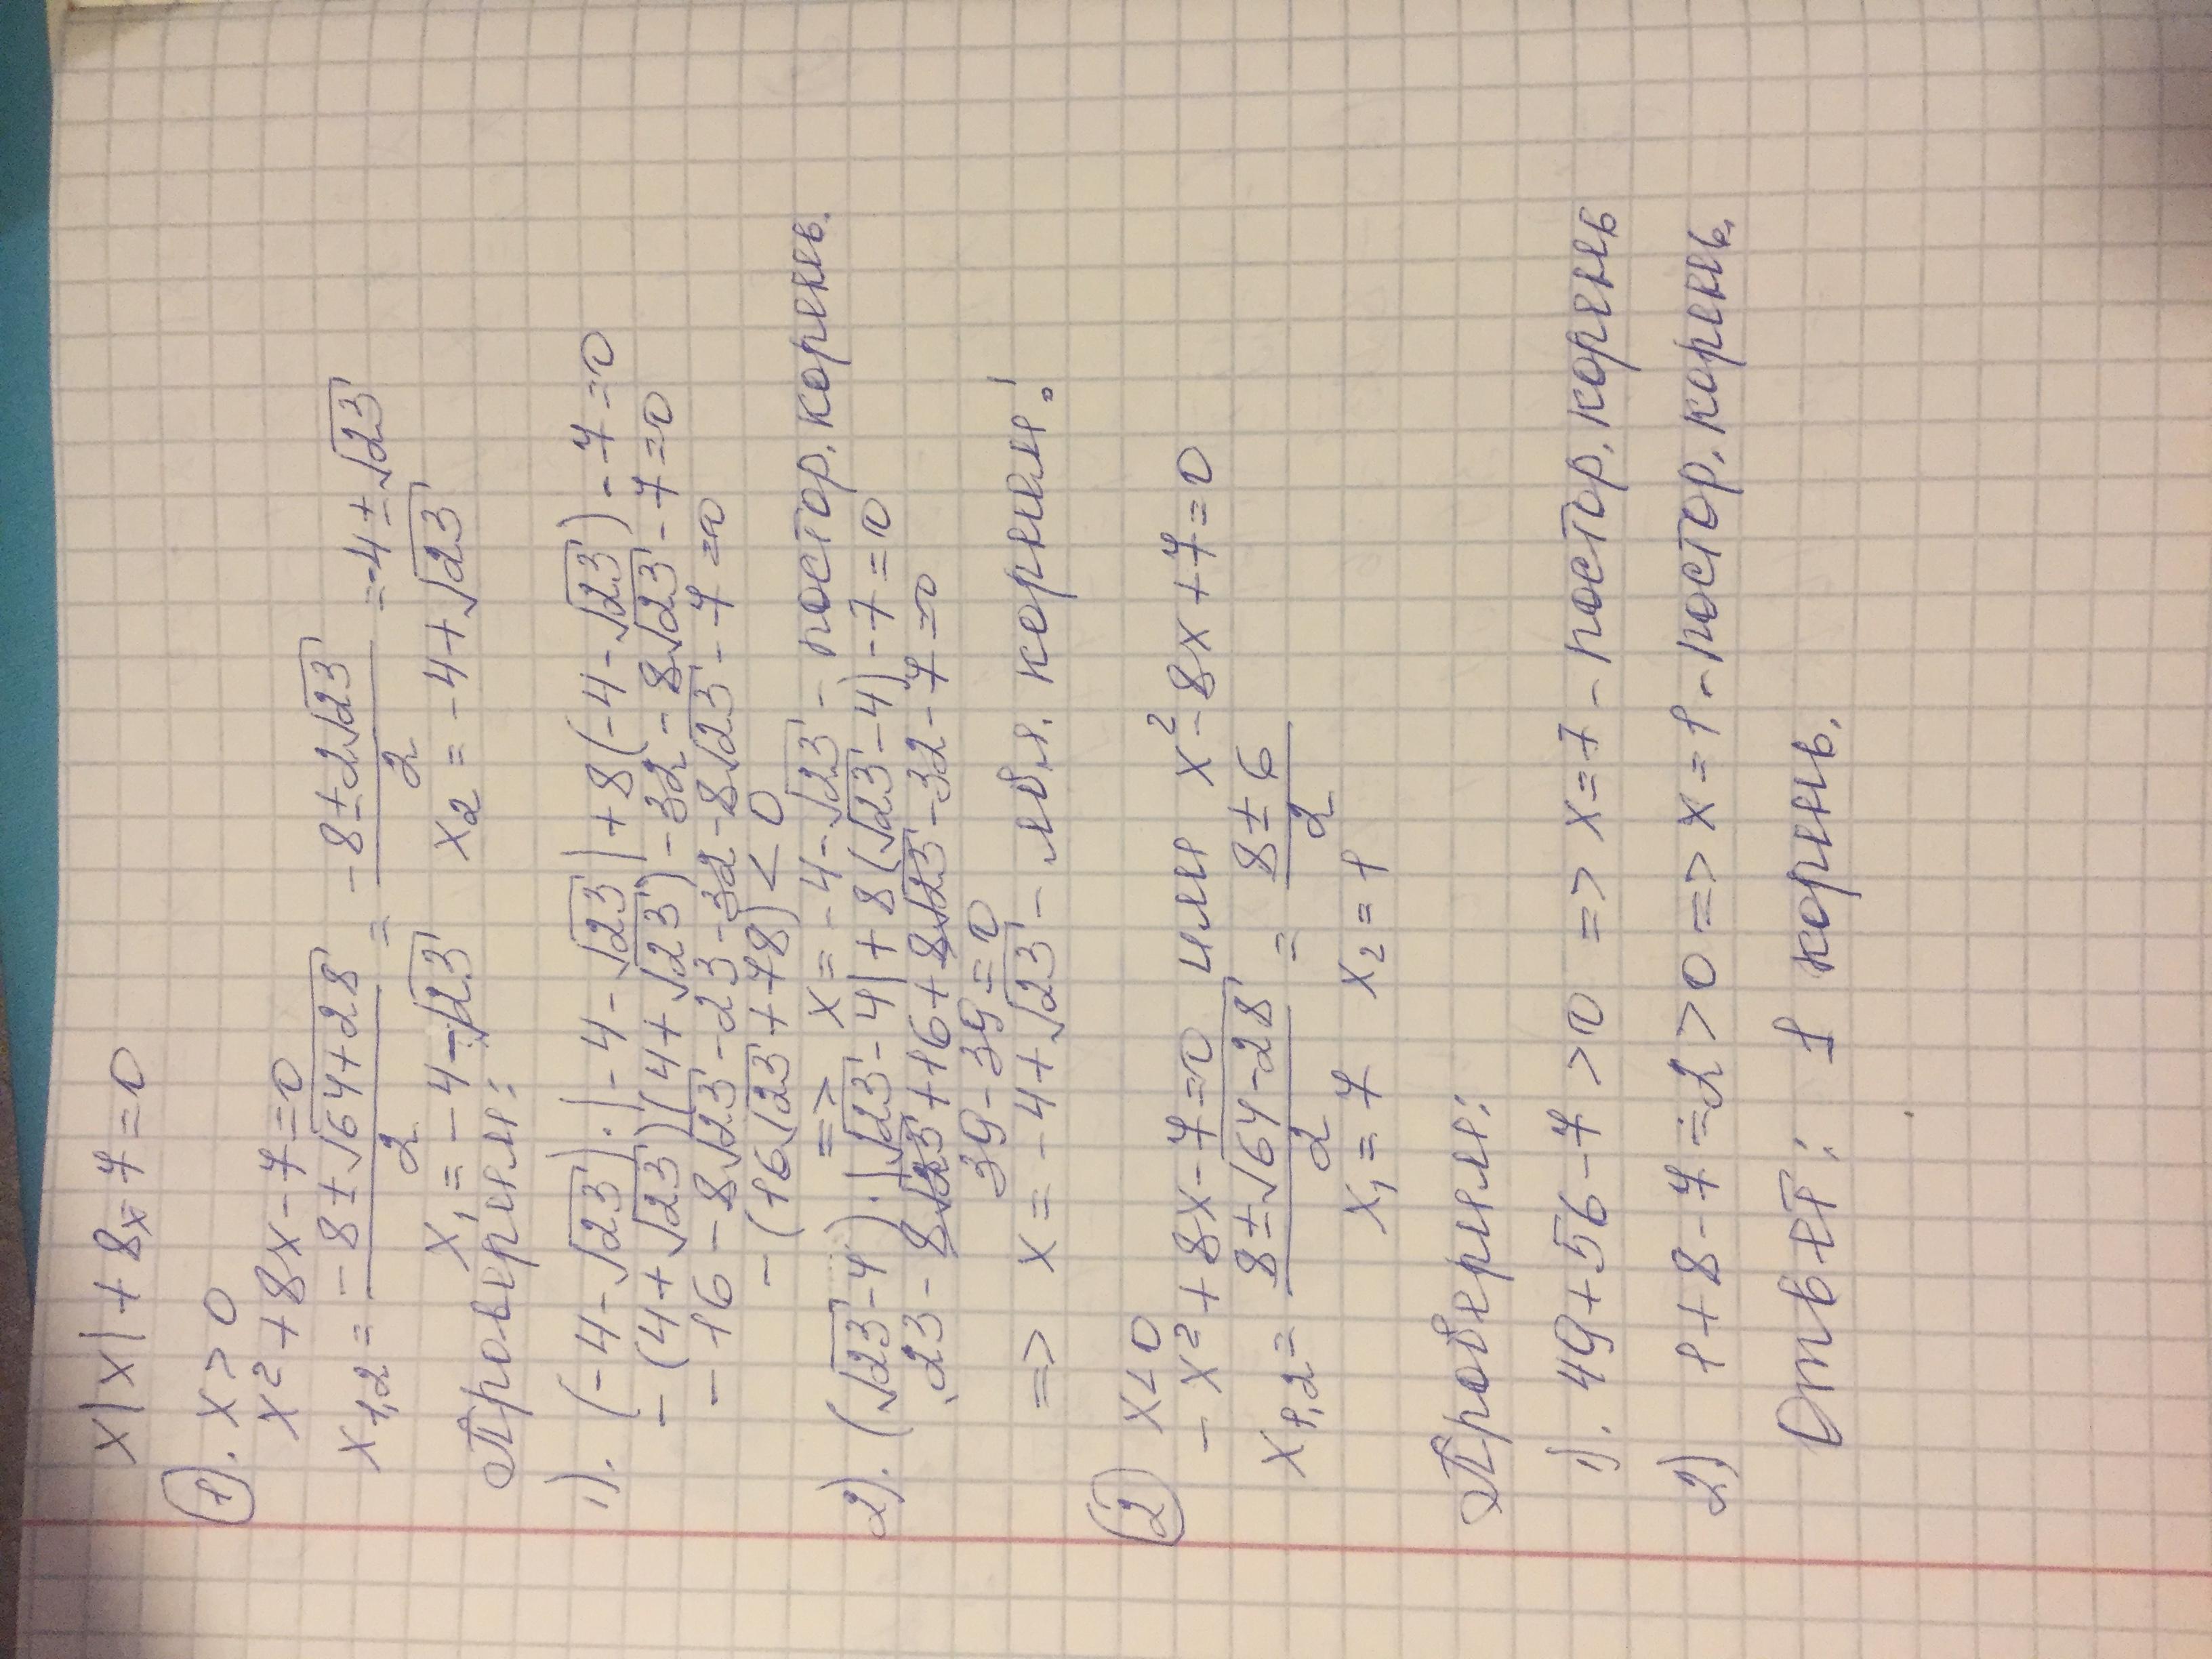 x|x| + 8x - 7 = 0
1). x > 0
x² + 8x - 7 = 0
x₁,₂ = (-8 ± √(64+28))/2 = (-8 ± 2√23)/2 = -4 ± √23
x₁ = -4 - √23   x₂ = -4 + √23
Проверим:
1). (-4 - √23)·|-4 - √23| + 8(-4 - √23) - 7 = 0
-(4 + √23)(4 + √23) - 32 - 8√23 - 7 = 0
-16 - 8√23 - 23 - 32 - 8√23 - 7 = 0
-(16√23 + 78) < 0
=> x = -4 - √23 - постор. корень.
2). (√23 - 4)·|√23 - 4| + 8(√23 - 4) - 7 = 0
23 - 8√23 + 16 + 8√23 - 32 - 7 = 0
39 - 39 = 0
=> x = -4 + √23 - явл. корнем!
2) x < 0
-x² + 8x - 7 = 0 или x² - 8x + 7 = 0
x₁,₂ = (8 ± √(64-28))/2 = (8 ± 6)/2
x₁ = 7   x₂ = 1
Проверим:
1). 49 + 56 - 7 > 0 => x = 7 - постор. корень
2) 1 + 8 - 7 = 2 > 0 => x = 1 - постор. корень.
Ответ: 1 корень.